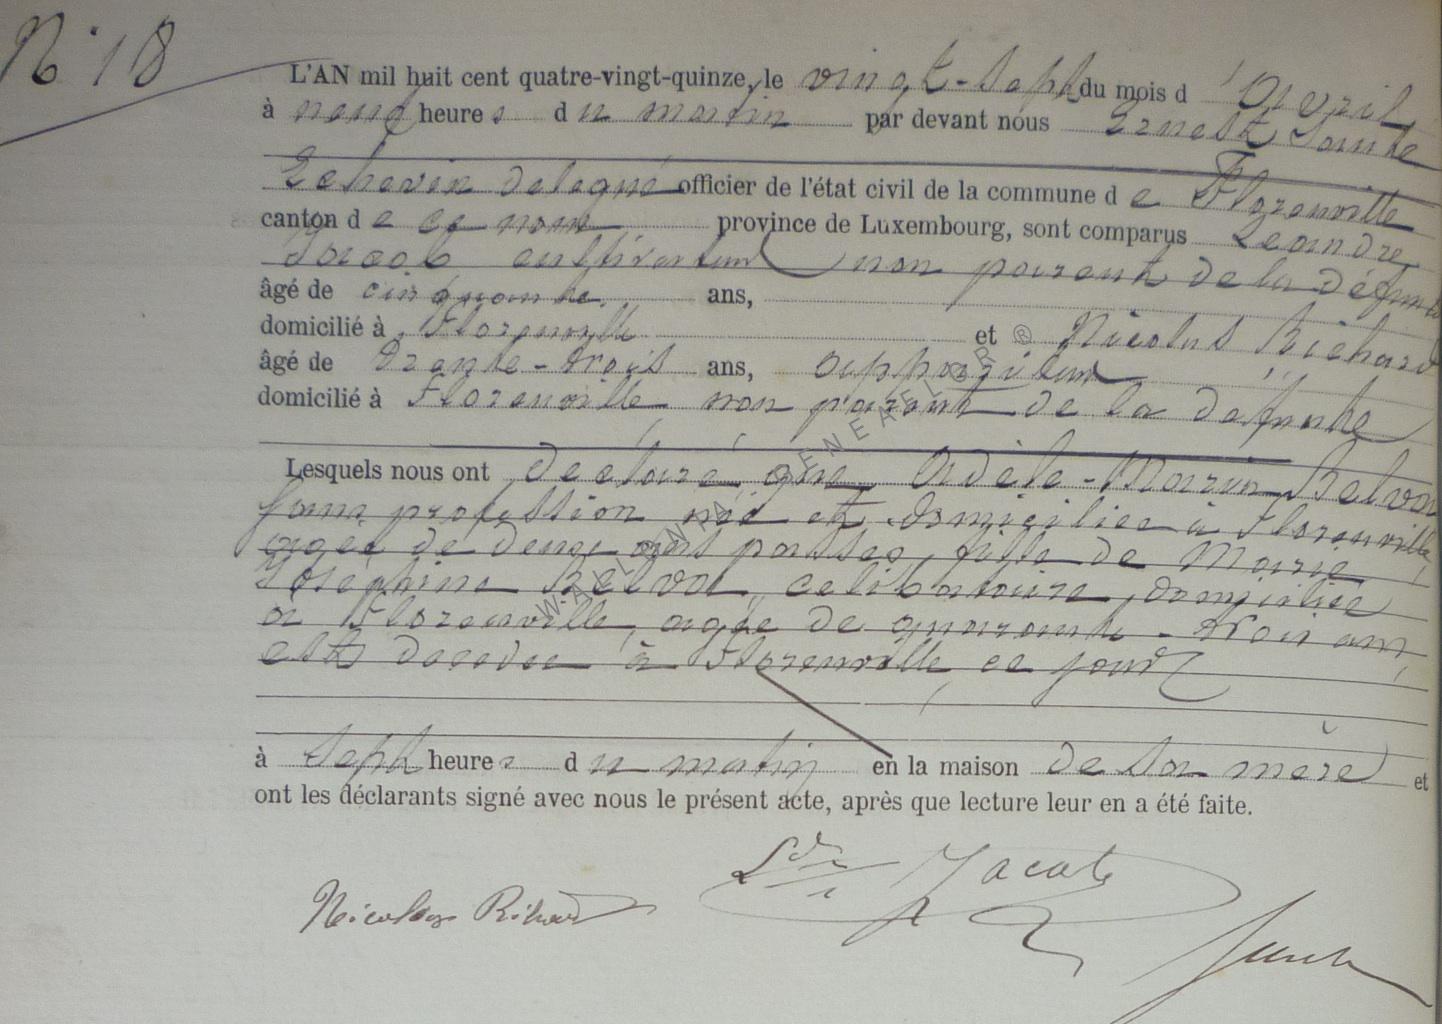 N° 18
L'AN mil huit cent quatre-vingt-quinze, le vingt-sept du mois d'Avril
à neuf heures du matin par devant nous Ernest
Echevin délégué officier de l'état civil de la commune de Florenville
canton de ce nom province de Luxembourg, sont comparus Léandre
Jacob cultivateur non parent de la défunte
âgé de cinquante ans,
domicilié à Florenville et Nicolas Richard
âgé de trente-trois ans,
domicilié à Florenville non parent de la défunte
Lesquels nous ont déclaré que Adèle-Maria Belva
sans profession née et domiciliée à Florenville,
agée de deux ans passés, fille de Marie
Joséphine Belva, celibataire, domiciliée
à Florenville, agée de quarante-trois ans,
est décédée à Florenville ce jour
à sept heures du matin en la maison de sa mère et
ont les déclarants signé avec nous le présent acte, après que lecture leur en a été faite.
Nicolas Richard Jacob